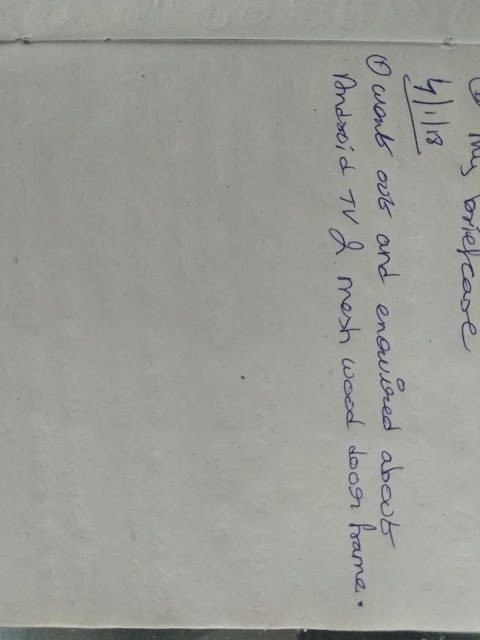 My briefcase
4/1/18
① Went out and enquired about
Android TV & mesh wood door frame.